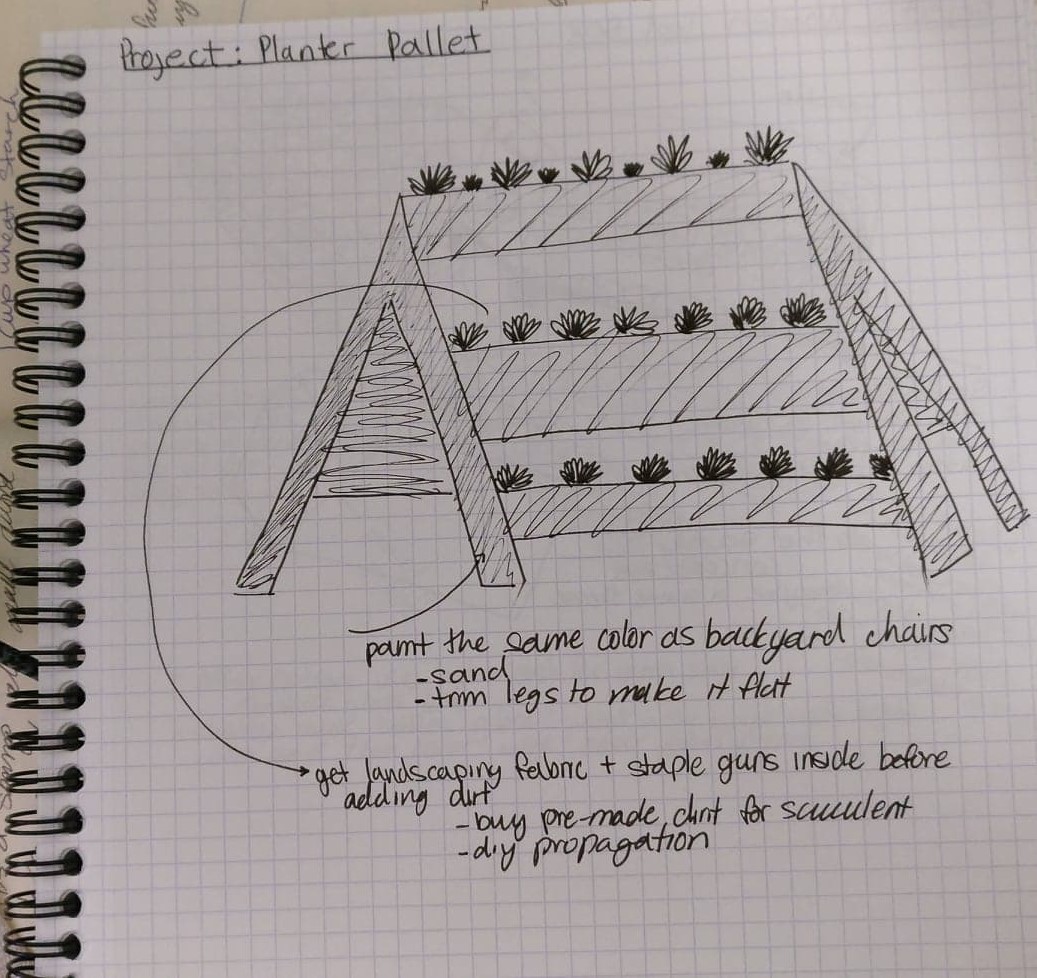 Project: Planter Pallet
paint the same color as backyard chairs
-sand
-trim legs to make it flat
get landscaping fabric + staple guns inside before
adding dirt
-buy pre-made dirt for succulent
-diy propagation